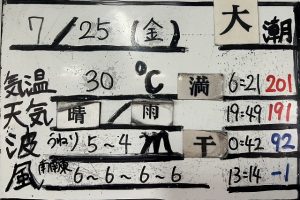 7/25(金) 大潮
気温 30℃ 満 6:21 201
天気 晴/雨 19:49 191
波 うねり 5~4m 干 0:42 92
風 南南東 6~6~6~6 13:14 -1